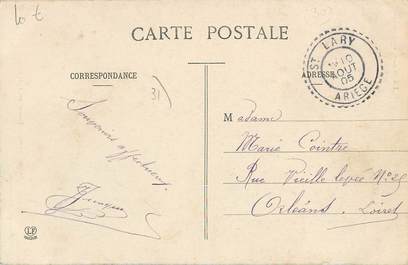 10 €
CARTE POSTALE
CORRESPONDANCE
ADRESSE
ST LARY
10
AOUT
05
ARIEGE
31
Souvenirs affectueux
M adame
Marie Cointre
Rue Vieille levée No 25
Orléans. Loiret